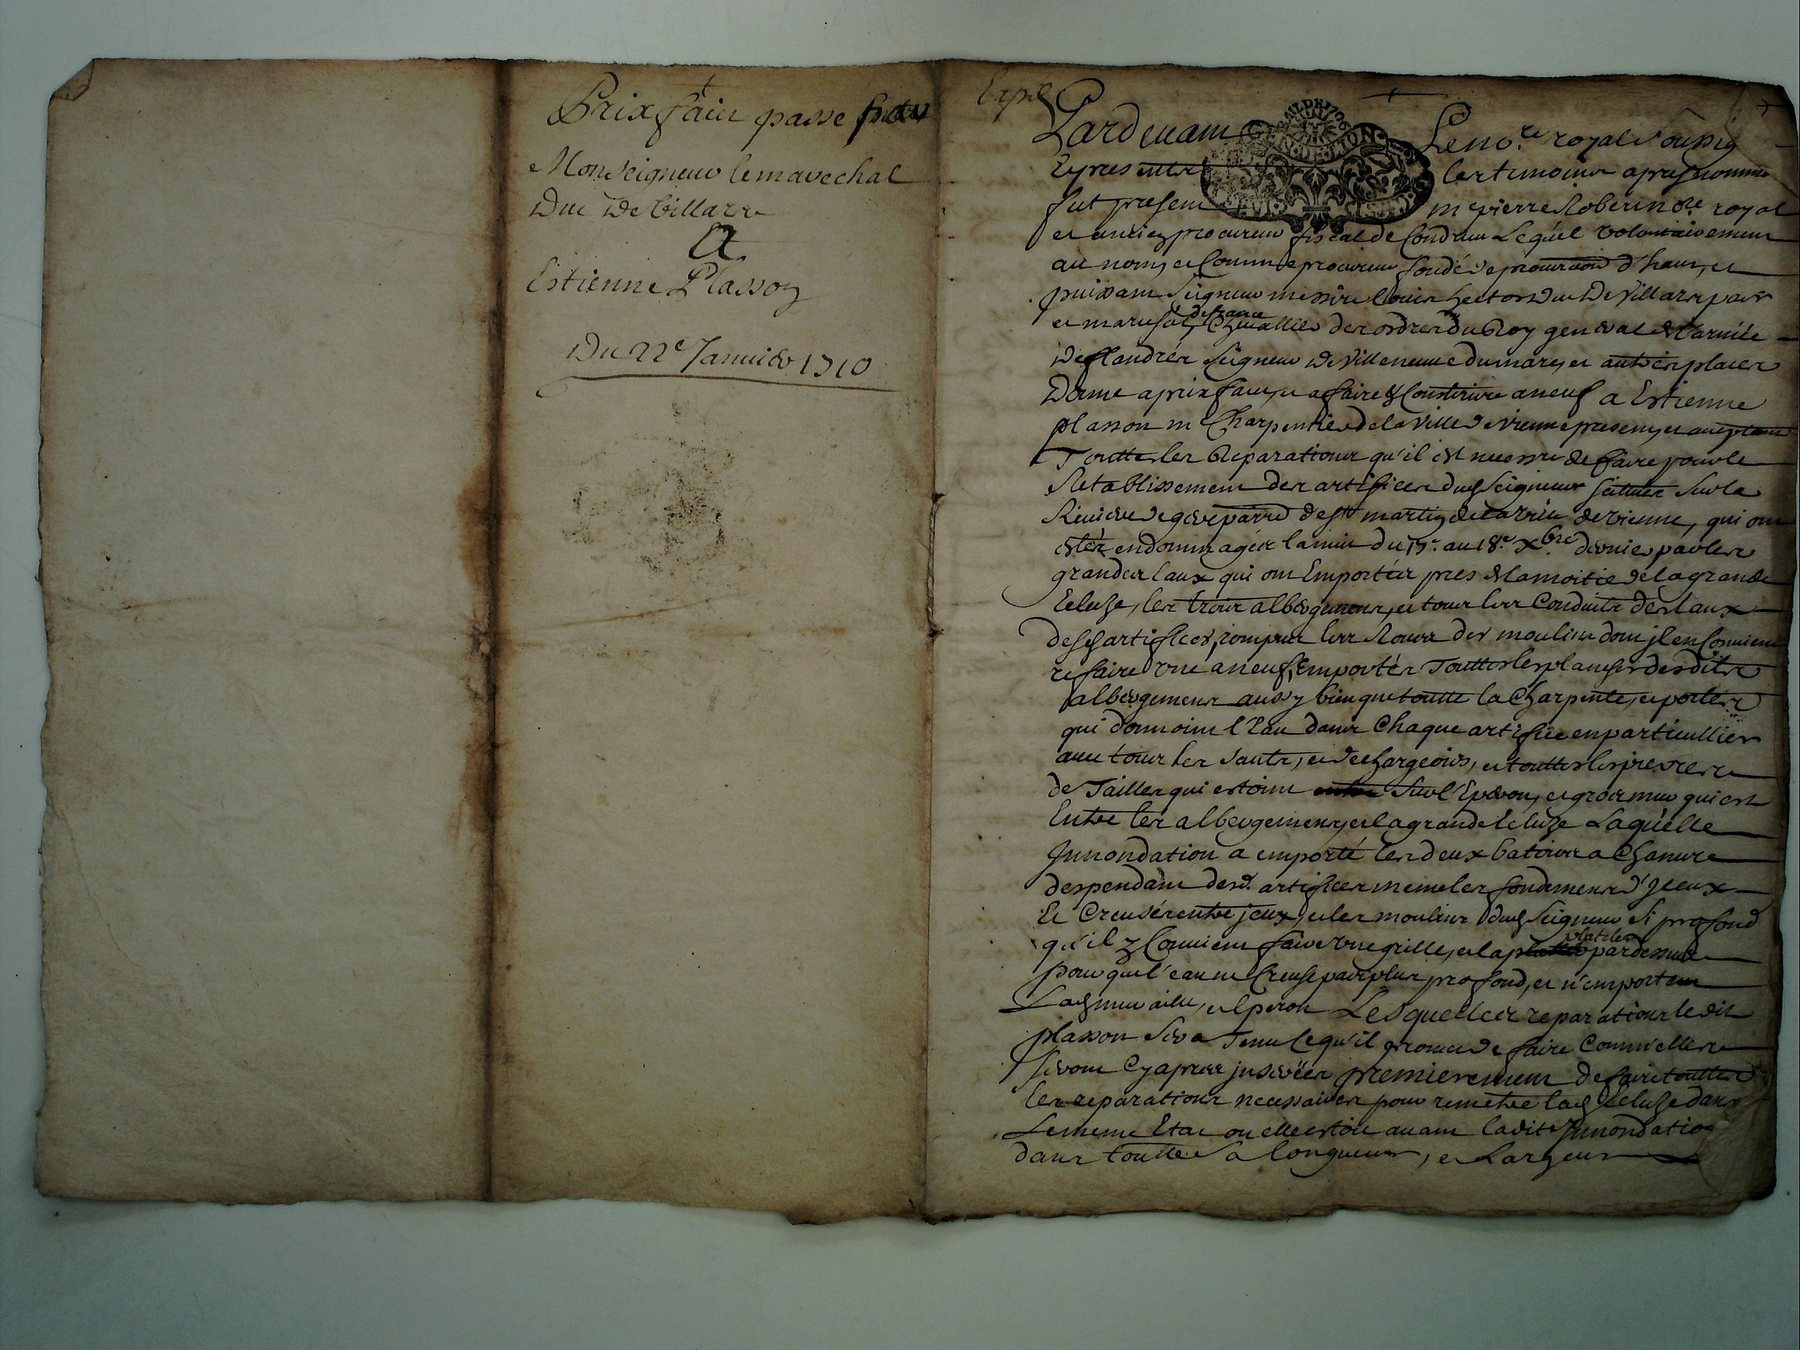 Prix fait passe par
Monseigneur le marechal
Duc de Villars
A
Estienne Plasson
Du 22e Janvier 1710
Expé
Pardevant Le no.re royal soussig
Et presents les temoins apres nommes
fut present me pierre Robert no.re royal
et ancien procureur fiscal de Condrieu Lequel volontairement
au nom, et Comme procureur fondé de procuration d'haut, et
puissant Seigneur messire louis hector Duc De Villars pair
et marechal de france Chevallier des ordres du Roy general de l'armée
De flandres Seigneur de Villeneuve de marc, et autres places
Donne a prix fait, a faire & Construire a neuf a Estienne
plasson me Charpentier de la Ville de vienne present, et acceptant
Touttes les Reparations qu'il est necessre de faire pour le
Retablissement des artifices dud Seigneur scitues sur la
Riviere de gere parre de st martin de la ville de vienne, qui ont
estés endommagés la nuit du 17e au 18e Xbre dernier par les
grandes Eaux qui ont Emportés pres de la moitié de la grande
Ecluse, les trois albergements, et tous les Conduits des Eaux
desd artifices, rompu les Roues des moulins dont il en Convient
refaire une a neuf, Emportés Touttes les planches desdits
albergements aussy bien que toutte la Charpente, et portes
qui donnoint l'Eau dans Chaque artifice en particullier
avec tous les sauts, et dechargeoirs, et touttes les pierres
de Tailles qui estoint sur l'Eperon, et gros mur qui est
Entre les albergements, et la grande Ecluse Laquelle
Innondation a emporté les deux batoirs a Chanvre
despendant desd. artifices meme les fondements d'Iceux
Et Creusé entre jceux, et les moulins dud Seigneur si profond
qu'il y Convient faire une grille, et la plateler par dessus
pour que l'eau ne Creuse pas plus profond, et n'emporte
Lad mur aille, et Eperon Lesquelles reparations le dit
plasson sera Tenu Ce qu'il promet de faire Comme elles
seront Cy apres jnserées premierement de faire touttes
les reparations necessaires pour remettre lad Ecluse dans
Le meme Etat ou elle estoit avant ladite Innondation
dans toutte sa longueur, et Largeur